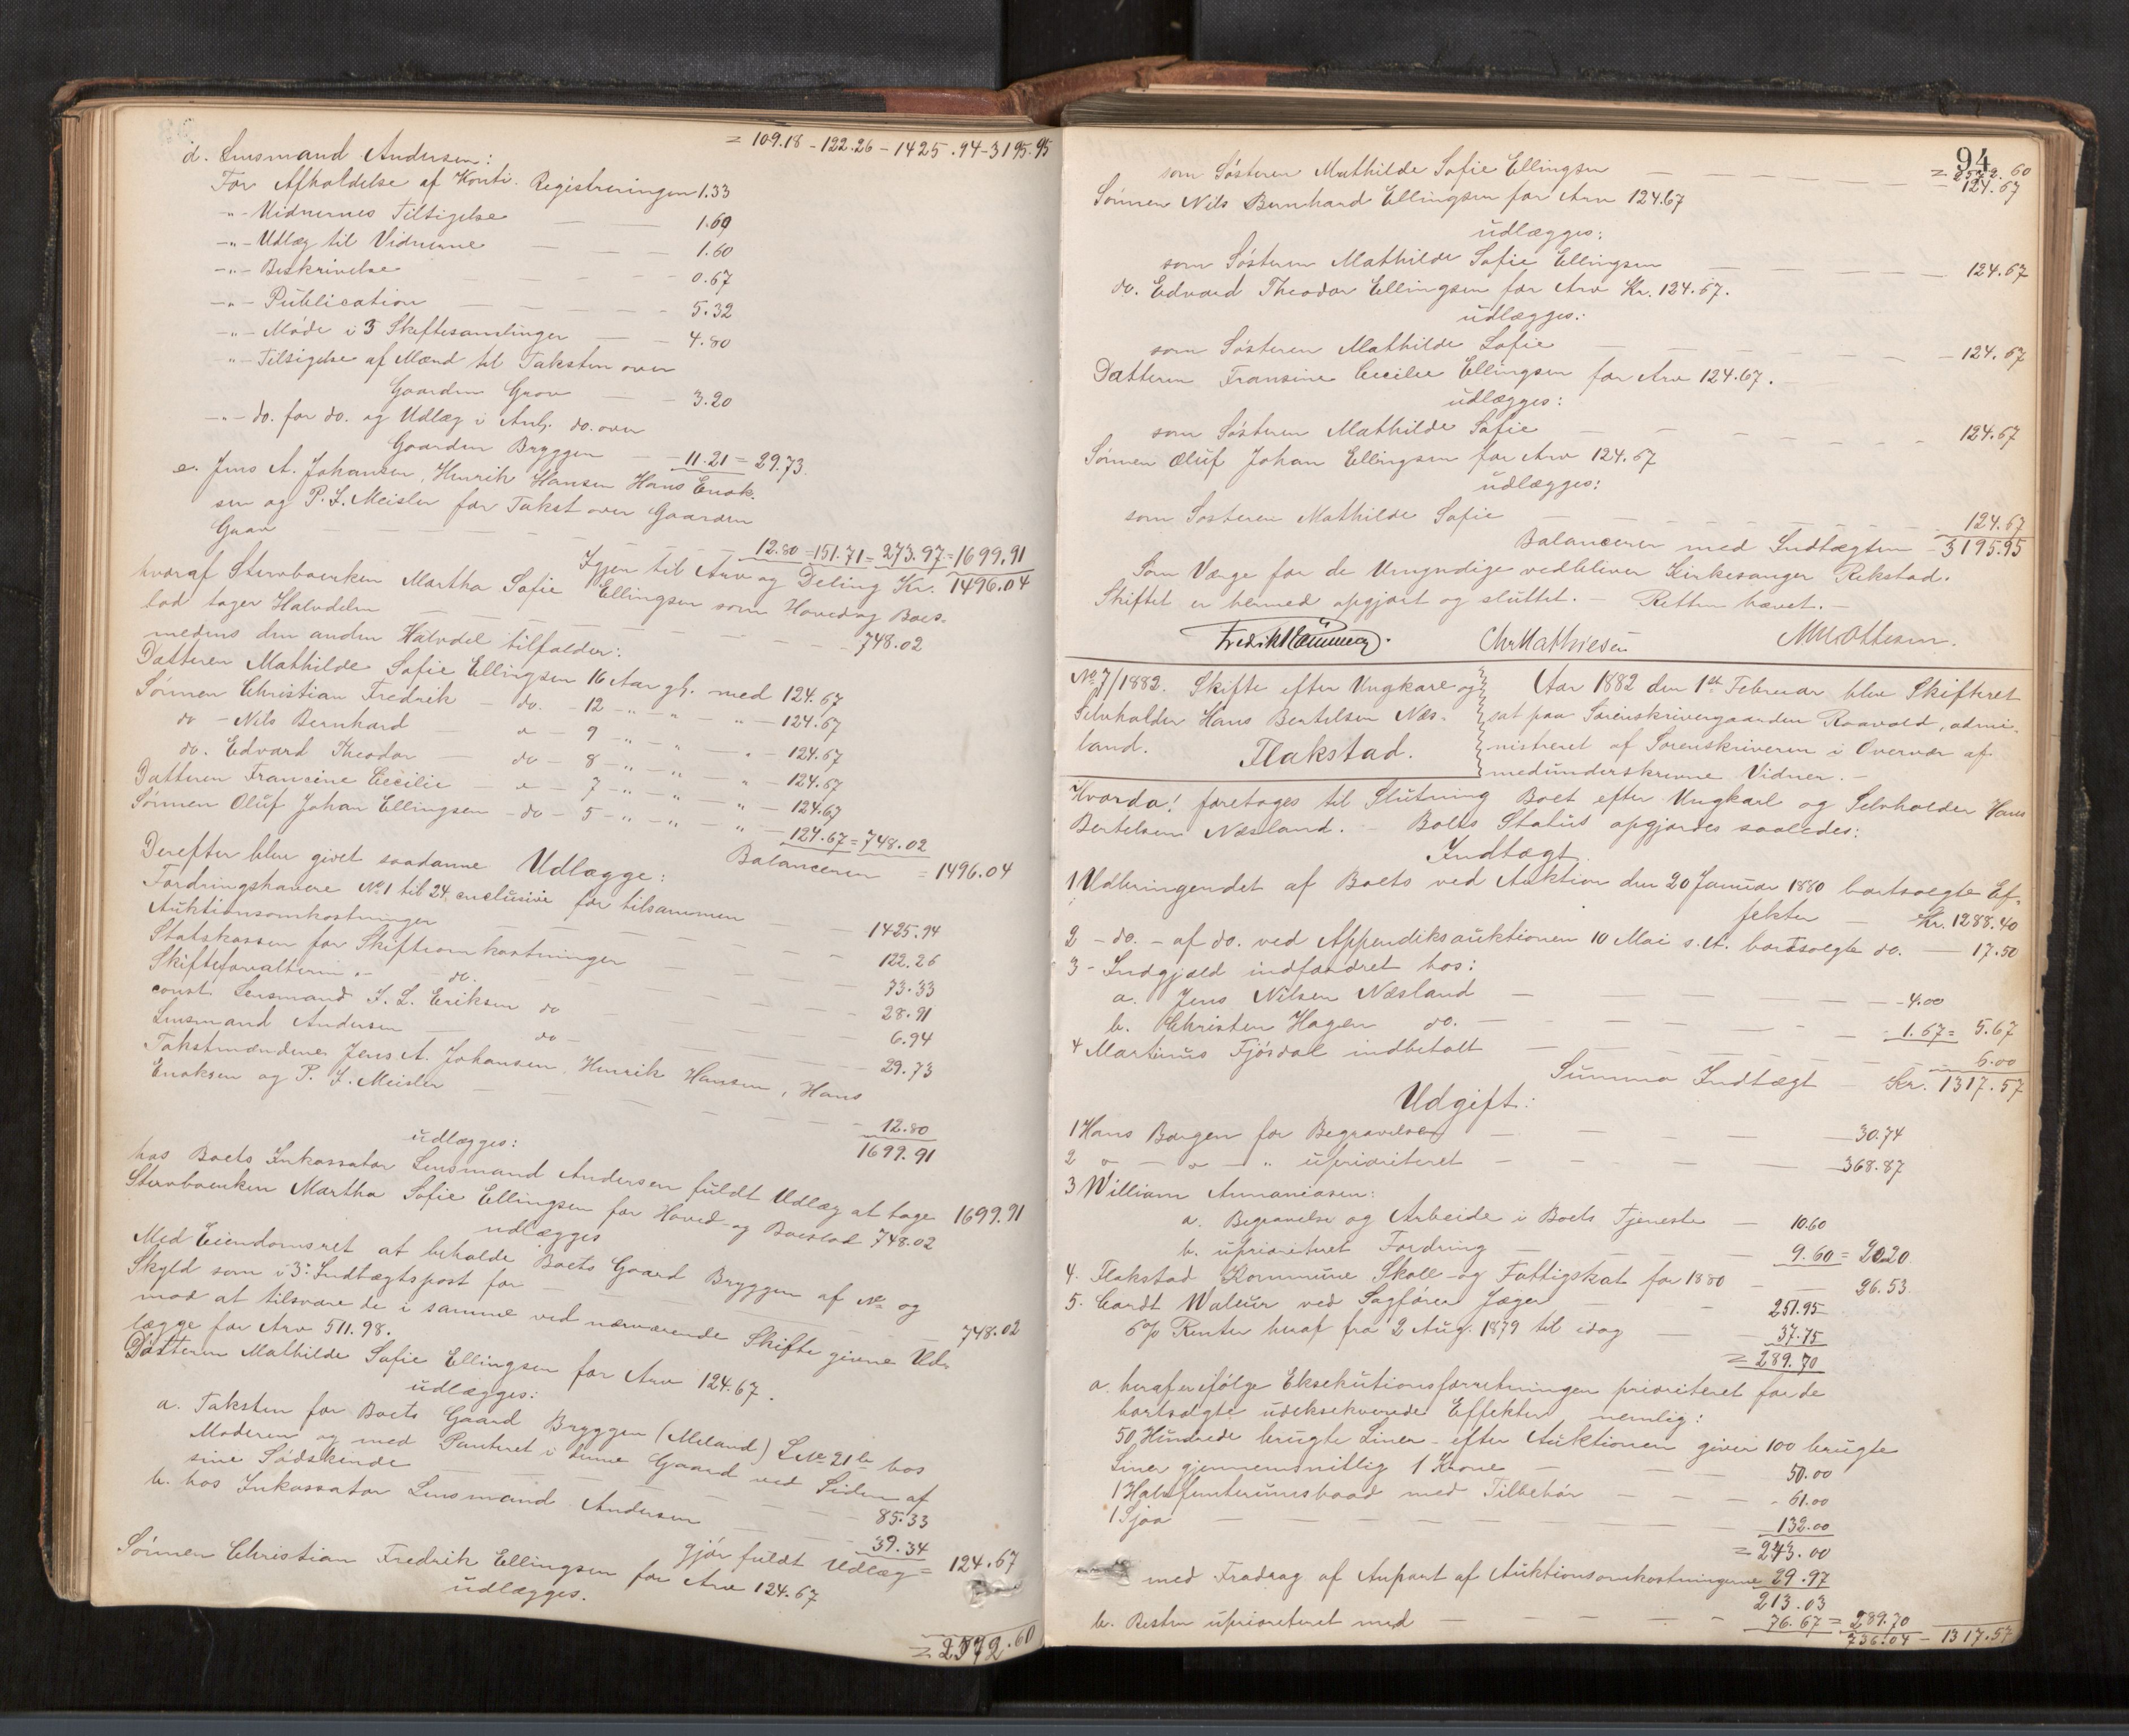 = 109.18 - 122.26 - 1425.94 - 3195.95
d. Lensmand Andersen:
For Afholdelse af Konti. Registreringen 1.33
-"- Vidnernes Tilsigelse 1.60
-"- Udlæg til Vidnerne 1.60
-"- Beskrivelse 0.67
-"- Publication 5.32
-"- Møde i 3 Skiftesamlinger 4.80
-"- Tilsigelse af Mænd til Taksten over
Gaarden Grov 3.20
-"- do. for do. og Udlæg i Anl. do. over
Gaarden Bryggen 11.21 = 29.73.
e. Jens A. Johansen, Henrik Hansen Hans Enok-
sen og P. J. Meisler for Takst over Gaarden
Grov 12.80 = 151.71 = 273.97 = 1699.91
Igjen til Arv og Deling Kr. 1496.04
hvoraf Stervboenken Martha Sofie Ellingsen som Hoved og Boes-
lod tager Halvdelen 748.02
medens den anden Halvdel tilfalder:
Datteren Mathilde Sofie Ellingsen 16 Aar gl. med 124.67
Sønnen Christian Fredrik - do. - 12 -"- " " - 124.67
do - Nils Bernhard " - 9 -"- " " - 124.67
do. Edvard Theodor do - 8 -"- " " - 124.67
Datteren Francine Cecilie " - 7 -"- " " - 124.67
Sønnen Oluf Johan Ellingsen - do - 5 -"- " " - 124.67 = 748.02
Balancerer = 1496.04
Derefter blev givet saadanne Udlægge:
Fordringshavere No 1 til 24 inclusive for tilsammen 1425.94
Auktionsomkostninger 122.26
Statskassen for Skifteomkostninger 73.33
Skifteforvalteren do. 28.91
const. Lensmand J. L. Eriksen do 6.94
Lensmand Andersen do - 29.73
Takstmændene Jens A. Johansen, Henrik Hansen, Hans
Enoksen og P. J. Meisler 12.80
1699.91
udlægges:
hos Boets Inkassator Lensmand Andersen fuldt Udlæg at tage 1699.91
Stervboenken Martha Sofie Ellingsen for Hoved- og Boeslod 748.02
udlægges
Med Eiendomsret at beholde Boets Gaard Bryggen af No og
Skyld som i 3: Indtægtspost for 748.02
mod at tilsvare de i samme ved nærværende Skifte givne Ud-
lægge for Arv 511.98.
Datteren Mathilde Sofie Ellingsen for Arv 124.67.
udlægges:
a. Taksten for Boets Gaard Bryggen (Meland) LNo 21b hos
Moderen og med Panteret i denne Gaard ved Siden af
sine Sødskende 85.33
b. hos Inkassator Lensmand Andersen 39.34
gjør fuldt Udlæg = 124.67
Sønnen Christian Fredrik Ellingsen for Arv 124.67
udlægges.
= 2572.60
94
= 2572.60
som Søsteren Mathilde Sofie Ellingsen - 124.67
Sønnen Nils Bernhard Ellingsen for Arv 124.67
udlægges:
som Søsteren Mathilde Sofie Ellingsen 124.67
do. Edvard Theodor Ellingsen for Arv Kr. 124.67.
udlægges:
som Søsteren Mathilde Sofie 124.67
Datteren Fransine Cecilie Ellingsen for Arv 124.67.
udlægges:
som Søsteren Mathilde Sofie 124.67
Sønnen Oluf Johan Ellingsen for Arv 124.67
udlægges:
som Søsteren Mathilde Sofie 124.67
Balancerer med Indtægten - 3195.95
Som Værge for de Umyndige vedbliver Kirkesanger Rekstad.
Skiftet er hermed opgjort og sluttet. - Retten hævet. -
Chr Mathiesen M Mattesen.
No 7/1882. Skifte efter Ungkarl og
Selvholder Hans Bertelsen Næs-
land. Flakstad.
Aar 1882 den 1st Februar blev Skifteret
sat paa Sorenskrivergaarden Raavold, admi-
nistreret af Sorenskriveren i Overvær af
medunderskrevne Vidner. -
Hvorda! foretoges til Slutning Boet efter Ungkarl og Selvholder Hans
Bertelsen Næsland. - Boets Status opgjordes saaledes:
Indtægt.
1 Udbringendet af Boets ved Auktion den 20 Januar 1880 bortsolgte Ef-
fekter - Kr. 1288.40
2 - do. - af do. ved Appendiksauktionen 10 Mai s. A. bortsolgte do. - 17.50
3 - Indgjæld indfordret hos:
a. Jens Nilsen Næsland - 4.00
b. Christen Hagen do. - 1.67 = 5.67
4 Martinus Fjøsdal indbetalt 6.00
Summa Indtægt Kr. 1317.57
Udgift:
1 Hans Borgen for Begravelsen 30.74
2 " - " - " uprioriteret 368.87
3 William Annaniasen:
a. Begravelse og Arbeide i Boets Tjeneste - 10.60
b. uprioriteret Fordring 9.60 = 20.20
4. Flakstad Kommune Skole- og Fattigskat for 1880 26.53
5. Cordt Waleur ved Sagfører Jæger 251.95
6 % Renter heraf fra 2 Aug. 1879 til idag 37.75
= 289.70
a. heraf er ifølge Eksekutionsforretningen prioriteret for de
bortsolgte udeksekverede Effekter nemlig:
50 Hundrede brugte Liner - efter Auktionen giver 100 brugte
Liner gjennemsnitlig 1 Krone 50.00
1 Halvfemterumsbaad med Tilbehør 61.00
1 Sjøa 132.00
= 243.00
med Fradrag af Anpart af Auktionsomkostningerne 29.97
213.03
b. Resten uprioriteret med 76.67 = 289.70
736.04 - 1317.57